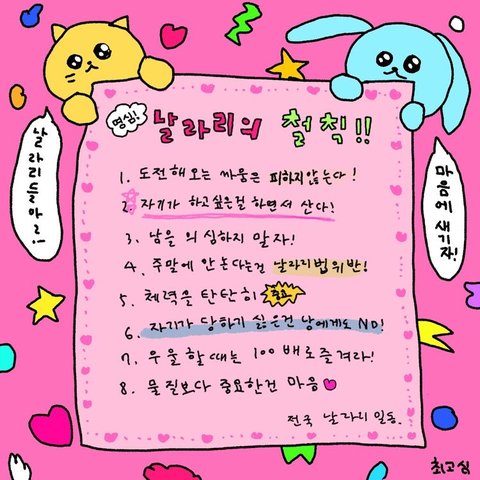 명심!
날라리의 철칙!!
날라리들아!
마음에 새기자!
1. 도전해오는 싸움은 피하지않는다!
2. 자기가 하고싶은걸 하면서 산다!
3. 남을 의심하지 말자!
4. 주말에 안논다는건 날라리법위반!
5. 체력을 탄탄히 중요
6. 자기가 당하기 싫은건 남에게도 NO!
7. 우울할때는 100배로즐겨라!
8. 물질보다 중요한건 마음
전국 날라리일동.
최고심